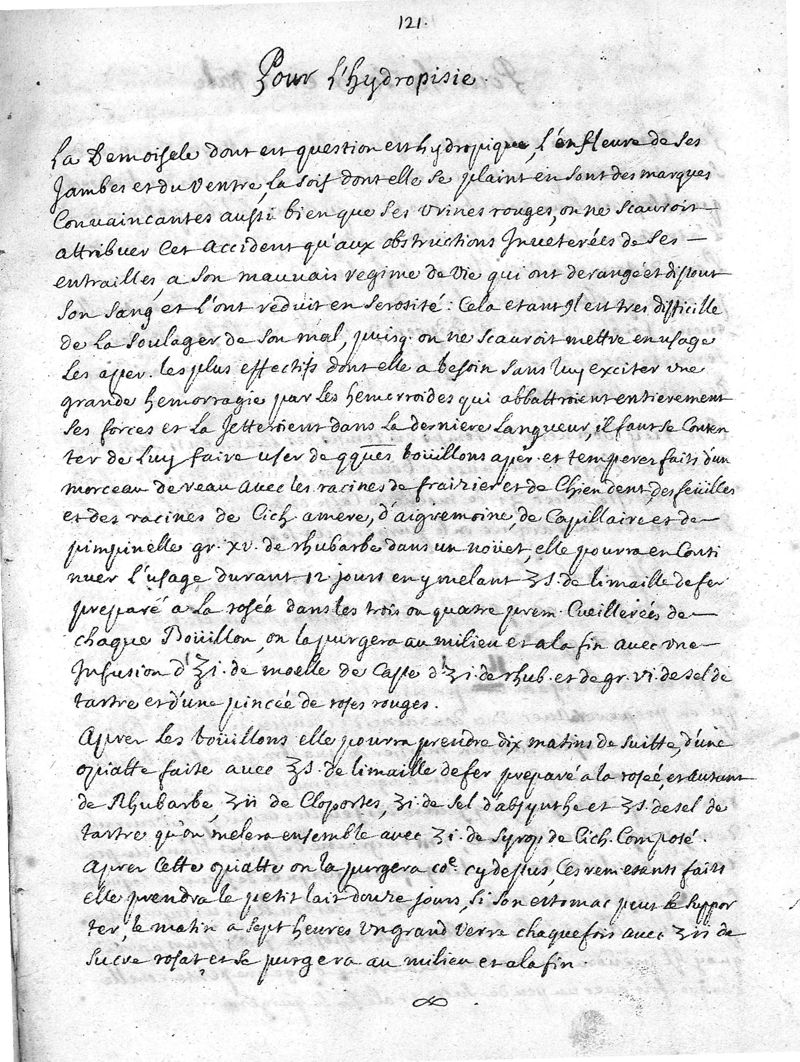 121.
Pour l'hydropisie.
La Demoisele dont est question est hydropique, l'enfleure de ses
Jambes et du ventre, la soif dont elle se plaint en sont des marques
Convaincantes aussi bien que ses vrines rouges, on ne scauroit
attribuer Cet Accident qu'aux obstructions Inueterées de ses —
entrailles, a son mauuais regime de vie qui ont derangé et disout
son sang et l'ont reduit en serosité : Cela etant Jl est tres difficille
de la soulager de son mal, puisq. on ne scauroit mettre en usage
les aper. les plus effectifs dont elle a besoin sans luy exciter vne
grande hemorragie par les hemorroides qui abbattroient entierement
ses forces et la Jetteroient dans la derniere langueur, il faut se Conten
ter de luy faire vser de qques boüillons aper. et temperer. faits d'un
morceau de veau avec les racines de fraizier et de Chien dent, des feüilles
et des racines de Cich. amere, d'aigremoine, de Capillaire et de —
pimpinelle gr. xv. de rhubarbe dans un noüet, elle pourra en Conti
nuer l'usage durant 12 jours en y melant ʒs. de limaille de fer
preparé a la rosée dans les trois ou quatre prem. Cueillerées de —
chaque Boüillon, on la purgera au milieu et a la fin avec vne —
Infusion d'ʒi. de moelle de Casse d'ʒi. de rhub. et de gr. vi. de sel de
tartre et d'une pincée de roses rouges.
Aprer les boüillons elle pourra prendre dix matins de suitte, d'une
opiatte faite avec ʒs. de limaille de fer preparé a la rosée, et autant
de Rhubarbe, ʒii de Cloportes, ʒi. de sel d'absynthe et ʒs. de sel de
tartre qu'on melera ensemble avec ʒi. de Syrop de Cich. Composé.
Aprer Cette opiatte on la purgera coe. cy dessus, Ces remes estants faits
elle prendra le petit lait douze jours, si son estomac peut le suppor
ter, le matin a sept heures vn grand verre chaque fois avec ʒii de
sucre rosat, et se purgera au milieu et a la fin.